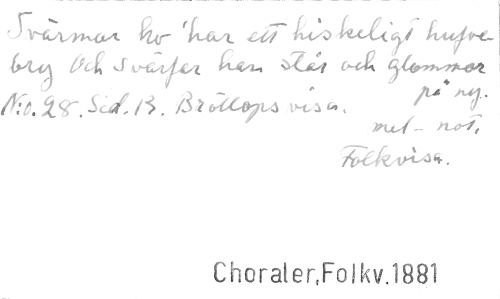 Svärmor ho' har ett hiskeligt hufve-
bry Och Svärfar han står och glammar
på ny.
N:o. 28. Sid. 12. Bröllops visa.
mel- not.
Folkvisa.
Choraler,Folkv.1881